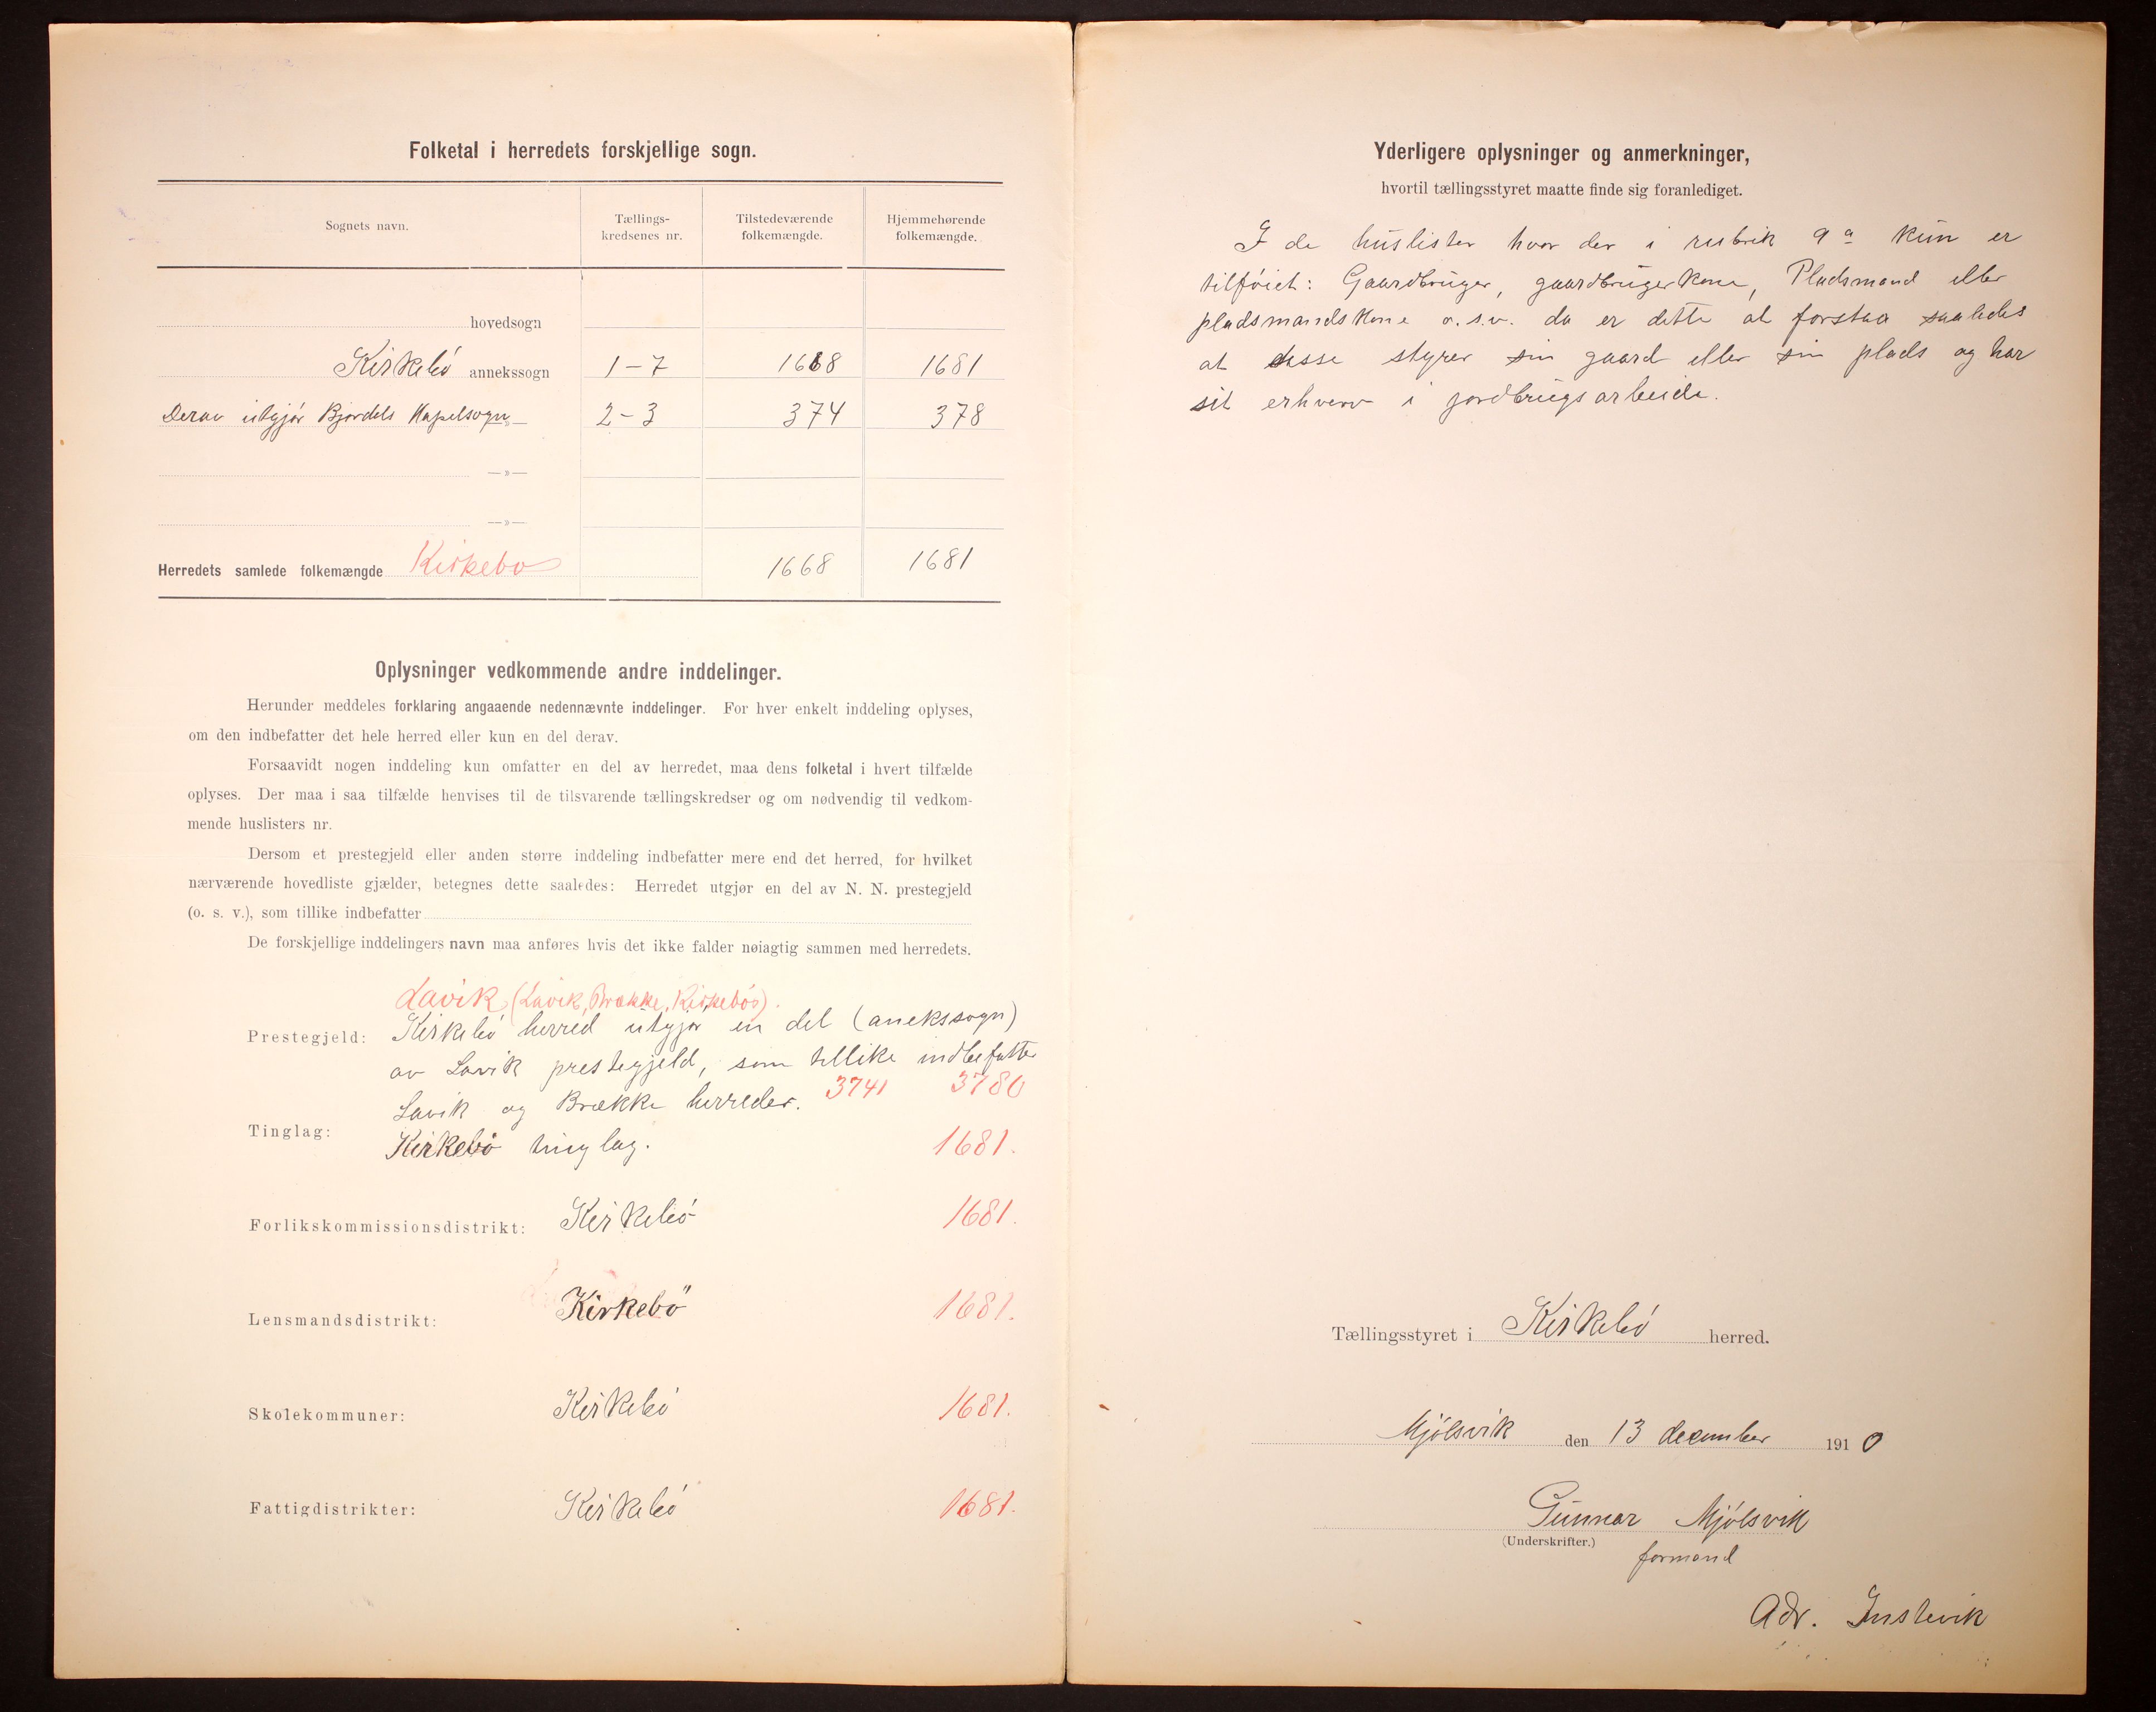 Folketal i herredets forskjellige sogn.
Sognets navn.
Tællings-
kredsenes nr.
Tilstedeværende
folkemængde.
Hjemmehørende
folkemængde.
hovedsogn
Kirkebö annekssogn 1-7 1668 1681
Derav utgjør Bjordals Kapelsogn —»— 2-3 374 378
—»—
—»—
Herredets samlede folkemængde Kirkebø 1668 1681
Oplysninger vedkommende andre inddelinger.
Herunder meddeles forklaring angaaende nedennævnte inddelinger. For hver enkelt inddeling oplyses,
om den indbefatter det hele herred eller kun en del derav.
Forsaavidt nogen inddeling kun omfatter en del av herredet, maa dens folketal i hvert tilfælde
oplyses. Der maa i saa tilfælde henvises til de tilsvarende tællingskredser og om nødvendig til vedkom-
mende huslisters nr.
Dersom et prestegjeld eller anden større inddeling indbefatter mere end det herred, for hvilket
nærværende hovedliste gjælder, betegnes dette saaledes: Herredet utgjør en del av N. N. prestegjeld
(o. s. v.), som tillike indbefatter
De forskjellige inddelingers navn maa anføres hvis det ikke falder nøiagtig sammen med herredets.
Lavik (Lavik, Brække, Kirkebö).
Prestegjeld: Kirkebö herred utgjör en del (anekssogn)
av Lavik prestegjeld, som tillike indbefatter
Lavik og Brække herreder. 3741 3780
Tinglag: Kirkebö tinglag. 1681.
Forlikskommissionsdistrikt: Kirkebö 1681.
Lensmandsdistrikt: Kirkebö 1681.
Skolekommuner: Kirkebö 1681.
Fattigdistrikter: Kirkebö 1681.
Yderligere oplysninger og anmerkninger,
hvortil tællingsstyret maatte finde sig foranlediget.
I de huslister hvor der i rubrik 9a kun er
tilföiet: Gaardbruger, gaardbrugerkone, Pladsmand eller
pladsmandskone o.s.v. da er dette at forstaa saaledes
at disse styrer sin gaard eller sin plads og har
sit erhverv i jordbrugsarbeide.
Tællingsstyret i Kirkebö herred.
Mjölsvik den 13 december 1910
Gunnar Mjölsvik
(Underskrifter.)
formand
Adr. Instevik